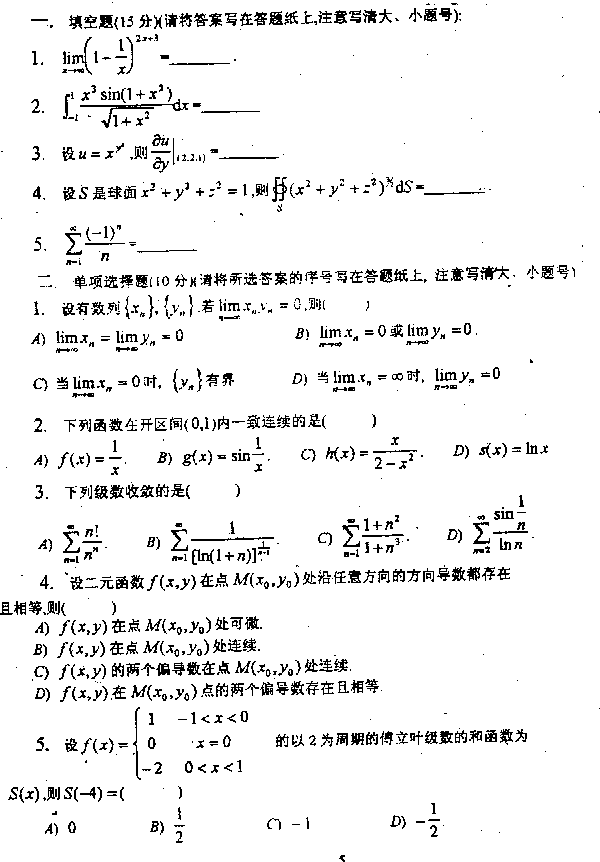 一. 填空题(15分)(请将答案写在答题纸上,注意写清大、小题号):
1. lim_{x→∞}(1-1/x)^{2x+3}=______.
2. ∫_{-1}^{1} x³sin(1+x²)/√(1+x²) dx=______
3. 设u=x^{y^z},则∂u/∂y|_{(2.2.1)}=______.
4. 设S是球面x²+y²+z²=1,则∯_S(x²+y²+z²)^{3/2}dS=______.
5. ∑_{n=1}^{∞}(-1)^n/n=______
二. 单项选择题(10分)(请将所选答案的序号写在答题纸上, 注意写清大、小题号)
1. 设有数列{x_n},{y_n}.若lim_{n→∞}x_n y_n=0,则( )
A) lim_{n→∞}x_n=lim_{n→∞}y_n=0 B) lim_{n→∞}x_n=0或lim_{n→∞}y_n=0.
C) 当lim_{n→∞}x_n=0时, {y_n}有界 D) 当lim_{n→∞}x_n=∞时, lim_{n→∞}y_n=0
2. 下列函数在开区间(0,1)内一致连续的是( )
A) f(x)=1/x. B) g(x)=sin1/x. C) h(x)=x/(2-x²). D) s(x)=lnx
3. 下列级数收敛的是( )
A) ∑_{n=1}^{∞}n!/n^n. B) ∑_{n=1}^{∞}1/[ln(1+n)] C) ∑_{n=1}^{∞}(1+n²)/(1+n³). D) ∑_{n=2}^{∞}sin(1/n)/lnn.
4. 设二元函数f(x,y)在点M(x₀,y₀)处沿任意方向的方向导数都存在
且相等,则( )
A) f(x,y)在点M(x₀,y₀)处可微.
B) f(x,y)在点M(x₀,y₀)处连续.
C) f(x,y)的两个偏导数在点M(x₀,y₀)处连续.
D) f(x,y)在M(x₀,y₀)点的两个偏导数存在且相等.
5. 设f(x)={1 -1<x<0
0 x=0
-2 0<x<1 的以2为周期的傅立叶级数的和函数为
S(x),则S(-4)=( )
A) 0 B) 1/2 C) -1 D) -1/2.
5